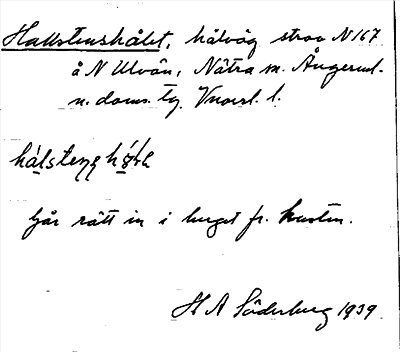 Hallstenshålet, hålväg strax N 167
å N Ulvön, Nätra sn. Ångerml.
n. doms. tg. Vnorrl. l.
Går rätt in i berget fr. kusten.
H A Söderberg 1939